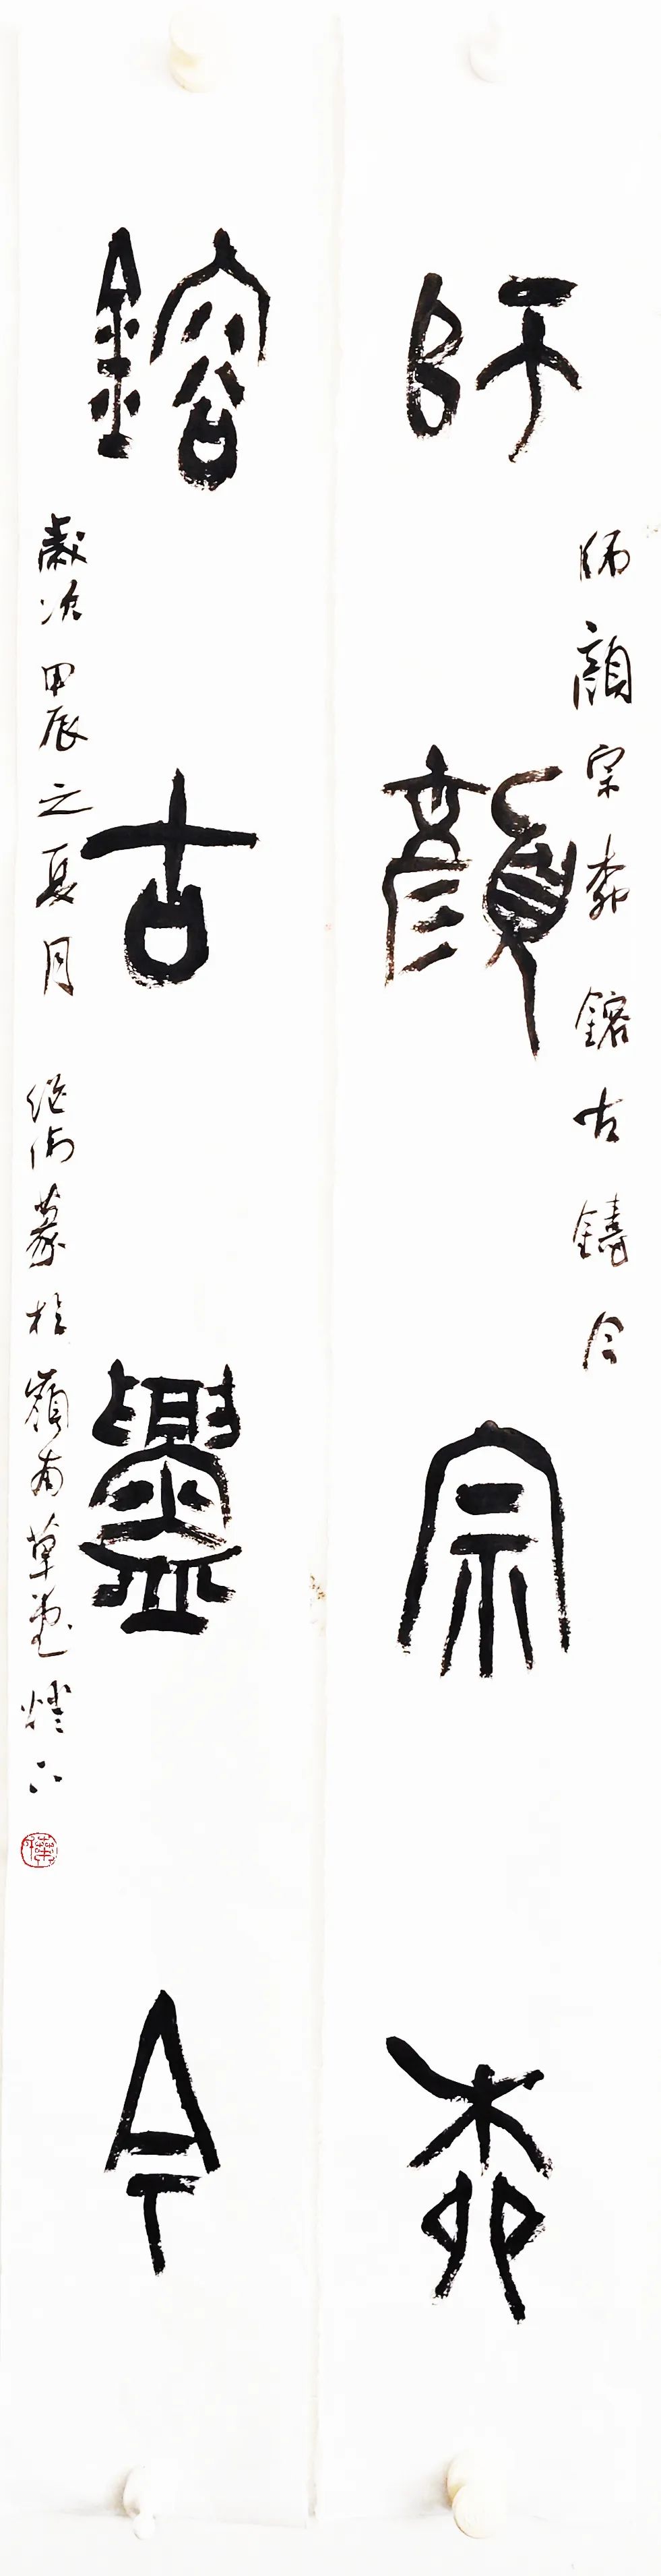 師顏宗桺鎔古鑄今
師顏宗桺
鎔古鑄今
歲次甲辰之夏月 篆於嶺南草堂燈下